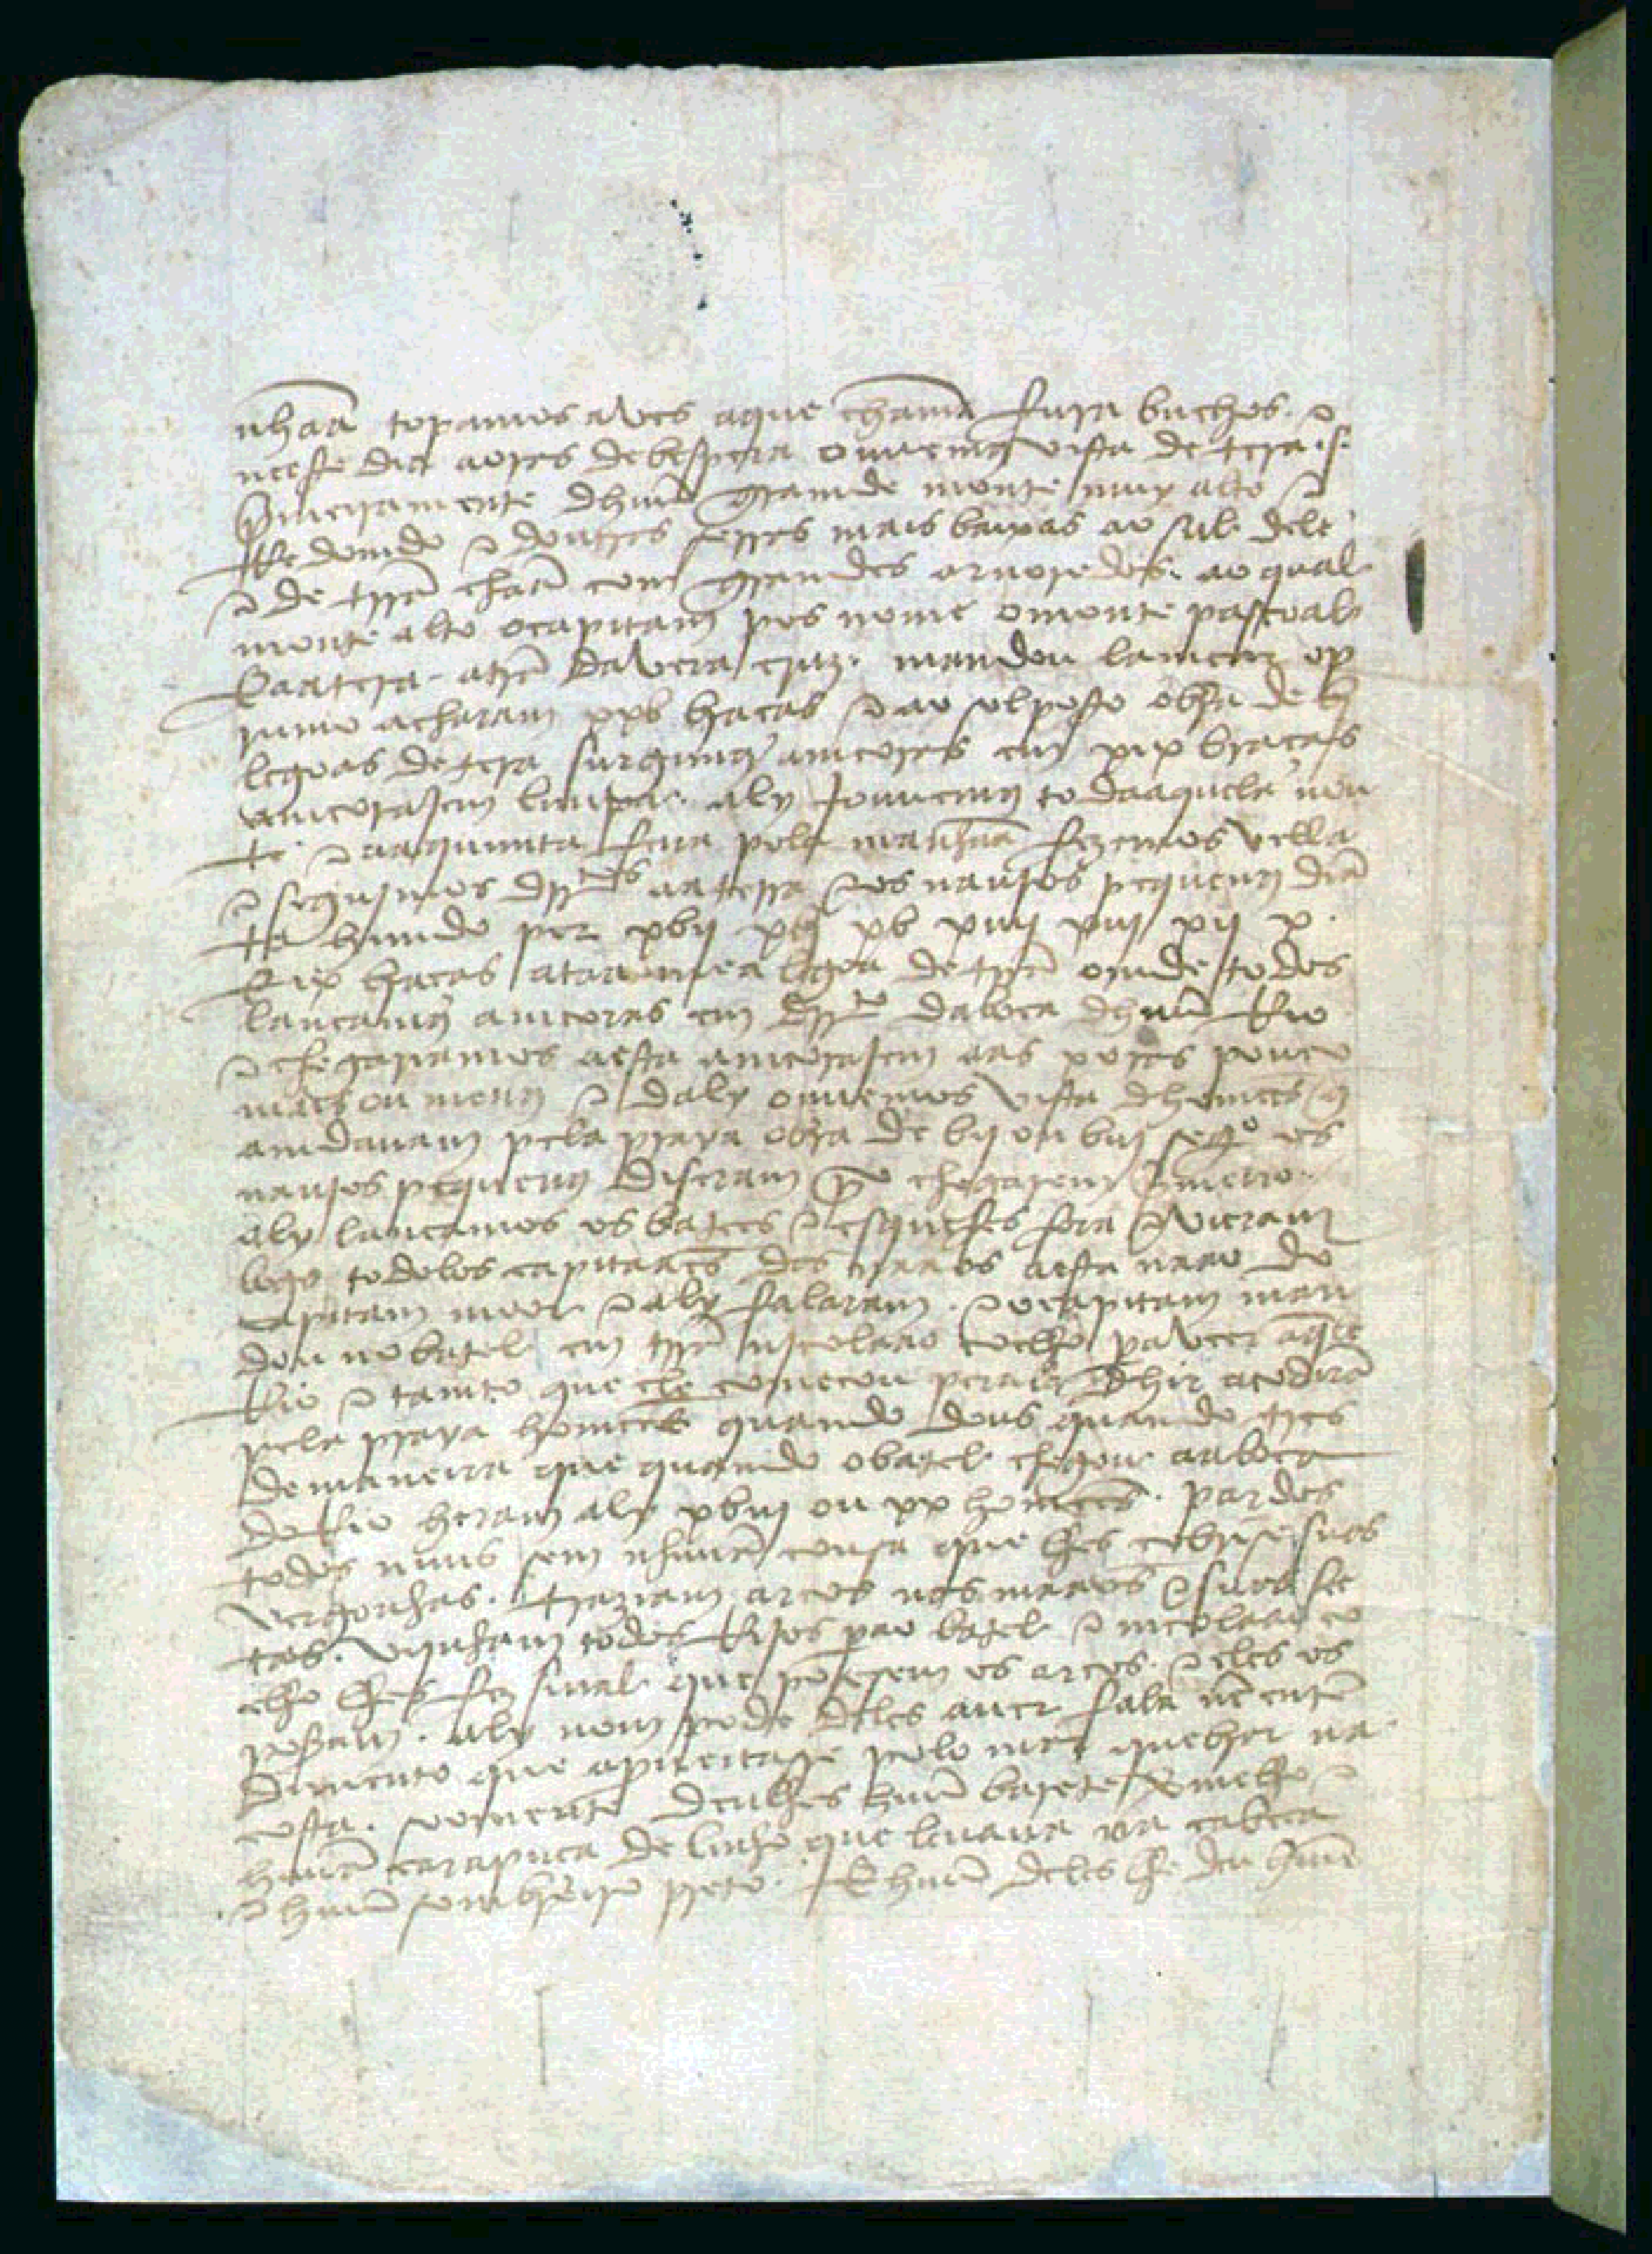 nhaã topamos aves aque chamã fura buchos. e
neeste dia aoras de bespera ouuemos vista de tera .s.
primeiramente dhuũ gramde monte muy alto e
Redomdo e doutras serras mais baixas ao sul dele
e de trrã chaã com grandes aruoredos. ao qual
monte alto ocapitam pos nome omonte pascoal
E aatera. atrã davera cruz. mandou lamcar op
rumo acharam xxb bracas e ao sol posto obra de bj
legoas de tera surgimos amcoras em xix bracas
amcorajem limpa. aly jouuemos todaaquela nou
te. e aaquimta feira pola manhaã fezemos vella
e seguimos drtos aaterra e os nauios pequenos diã
te himdo per xbij xbj xb xiiij xiij xij x
E ix bracas ataa mea legoa de trrã omde todos
lancamos amcoras em drto daboca dhuũ Rio
e chegariamos aesta amcorajem aas x oras pouco
mais ou menos e daly ouuemos vista dhomeẽs q
amdauam pela praya obra de bij ou biij segº os
nauios pequenos diseram por chegarem primeiro.
aly lancamos os batees e esquifes fora e vieram
logo todolos capitaaẽs das naaos aesta naao do
capitam moor e aly falaram. e ocapitam man
dou no batel em trrã nicolaao coelho pa veer aqle
Rio e tamto que ele comecou pera la dhir acodirã
pela praya homeẽs quando dous quando tres
de maneira que quando obatel chegou aaboca
do Rio heram aly xbiij ou xx homeẽs. pardos
todos nuus sem nhuũa cousa que lhes cobrise suas
vergonhas. traziam arcos nas maãos e suas see
tas. vijnham todos Rijos pao batel e nicolaao co
elho lhes fez sinal que posesem os arcos. e eles os
poseram. aly nom pode deles auer fala nẽ entẽ
dimento que aproueitase polo mar quebrar na
costa. somente deulhes huũ barete vermelho e
huũa carapuca de linho que leuaua na cabeca
e huũ sombreiro preto. E huũ deles lhe deu huũ